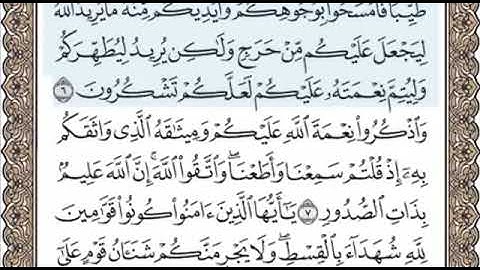 طَيِّبًا فَٱمْسَحُوا۟ بِوُجُوهِكُمْ وَأَيْدِيكُم مِّنْهُ مَا يُرِيدُ ٱللَّهُ
لِيَجْعَلَ عَلَيْكُم مِّنْ حَرَجٍ وَلَٰكِن يُرِيدُ لِيُطَهِّرَكُمْ
وَلِيُتِمَّ نِعْمَتَهُۥ عَلَيْكُمْ لَعَلَّكُمْ تَشْكُرُونَ ٦
وَٱذْكُرُوا۟ نِعْمَةَ ٱللَّهِ عَلَيْكُمْ وَمِيثَٰقَهُ ٱلَّذِى وَاثَقَكُم
بِهِۦٓ إِذْ قُلْتُمْ سَمِعْنَا وَأَطَعْنَا ۖ وَٱتَّقُوا۟ ٱللَّهَ ۚ إِنَّ ٱللَّهَ عَلِيمٌۢ
بِذَاتِ ٱلصُّدُورِ ٧ يَٰٓأَيُّهَا ٱلَّذِينَ ءَامَنُوا۟ كُونُوا۟ قَوَّٰمِينَ
لِلَّهِ شُهَدَآءَ بِٱلْقِسْطِ ۖ وَلَا يَجْرِمَنَّكُمْ شَنَـَٔانُ قَوْمٍ عَلَىٰٓ